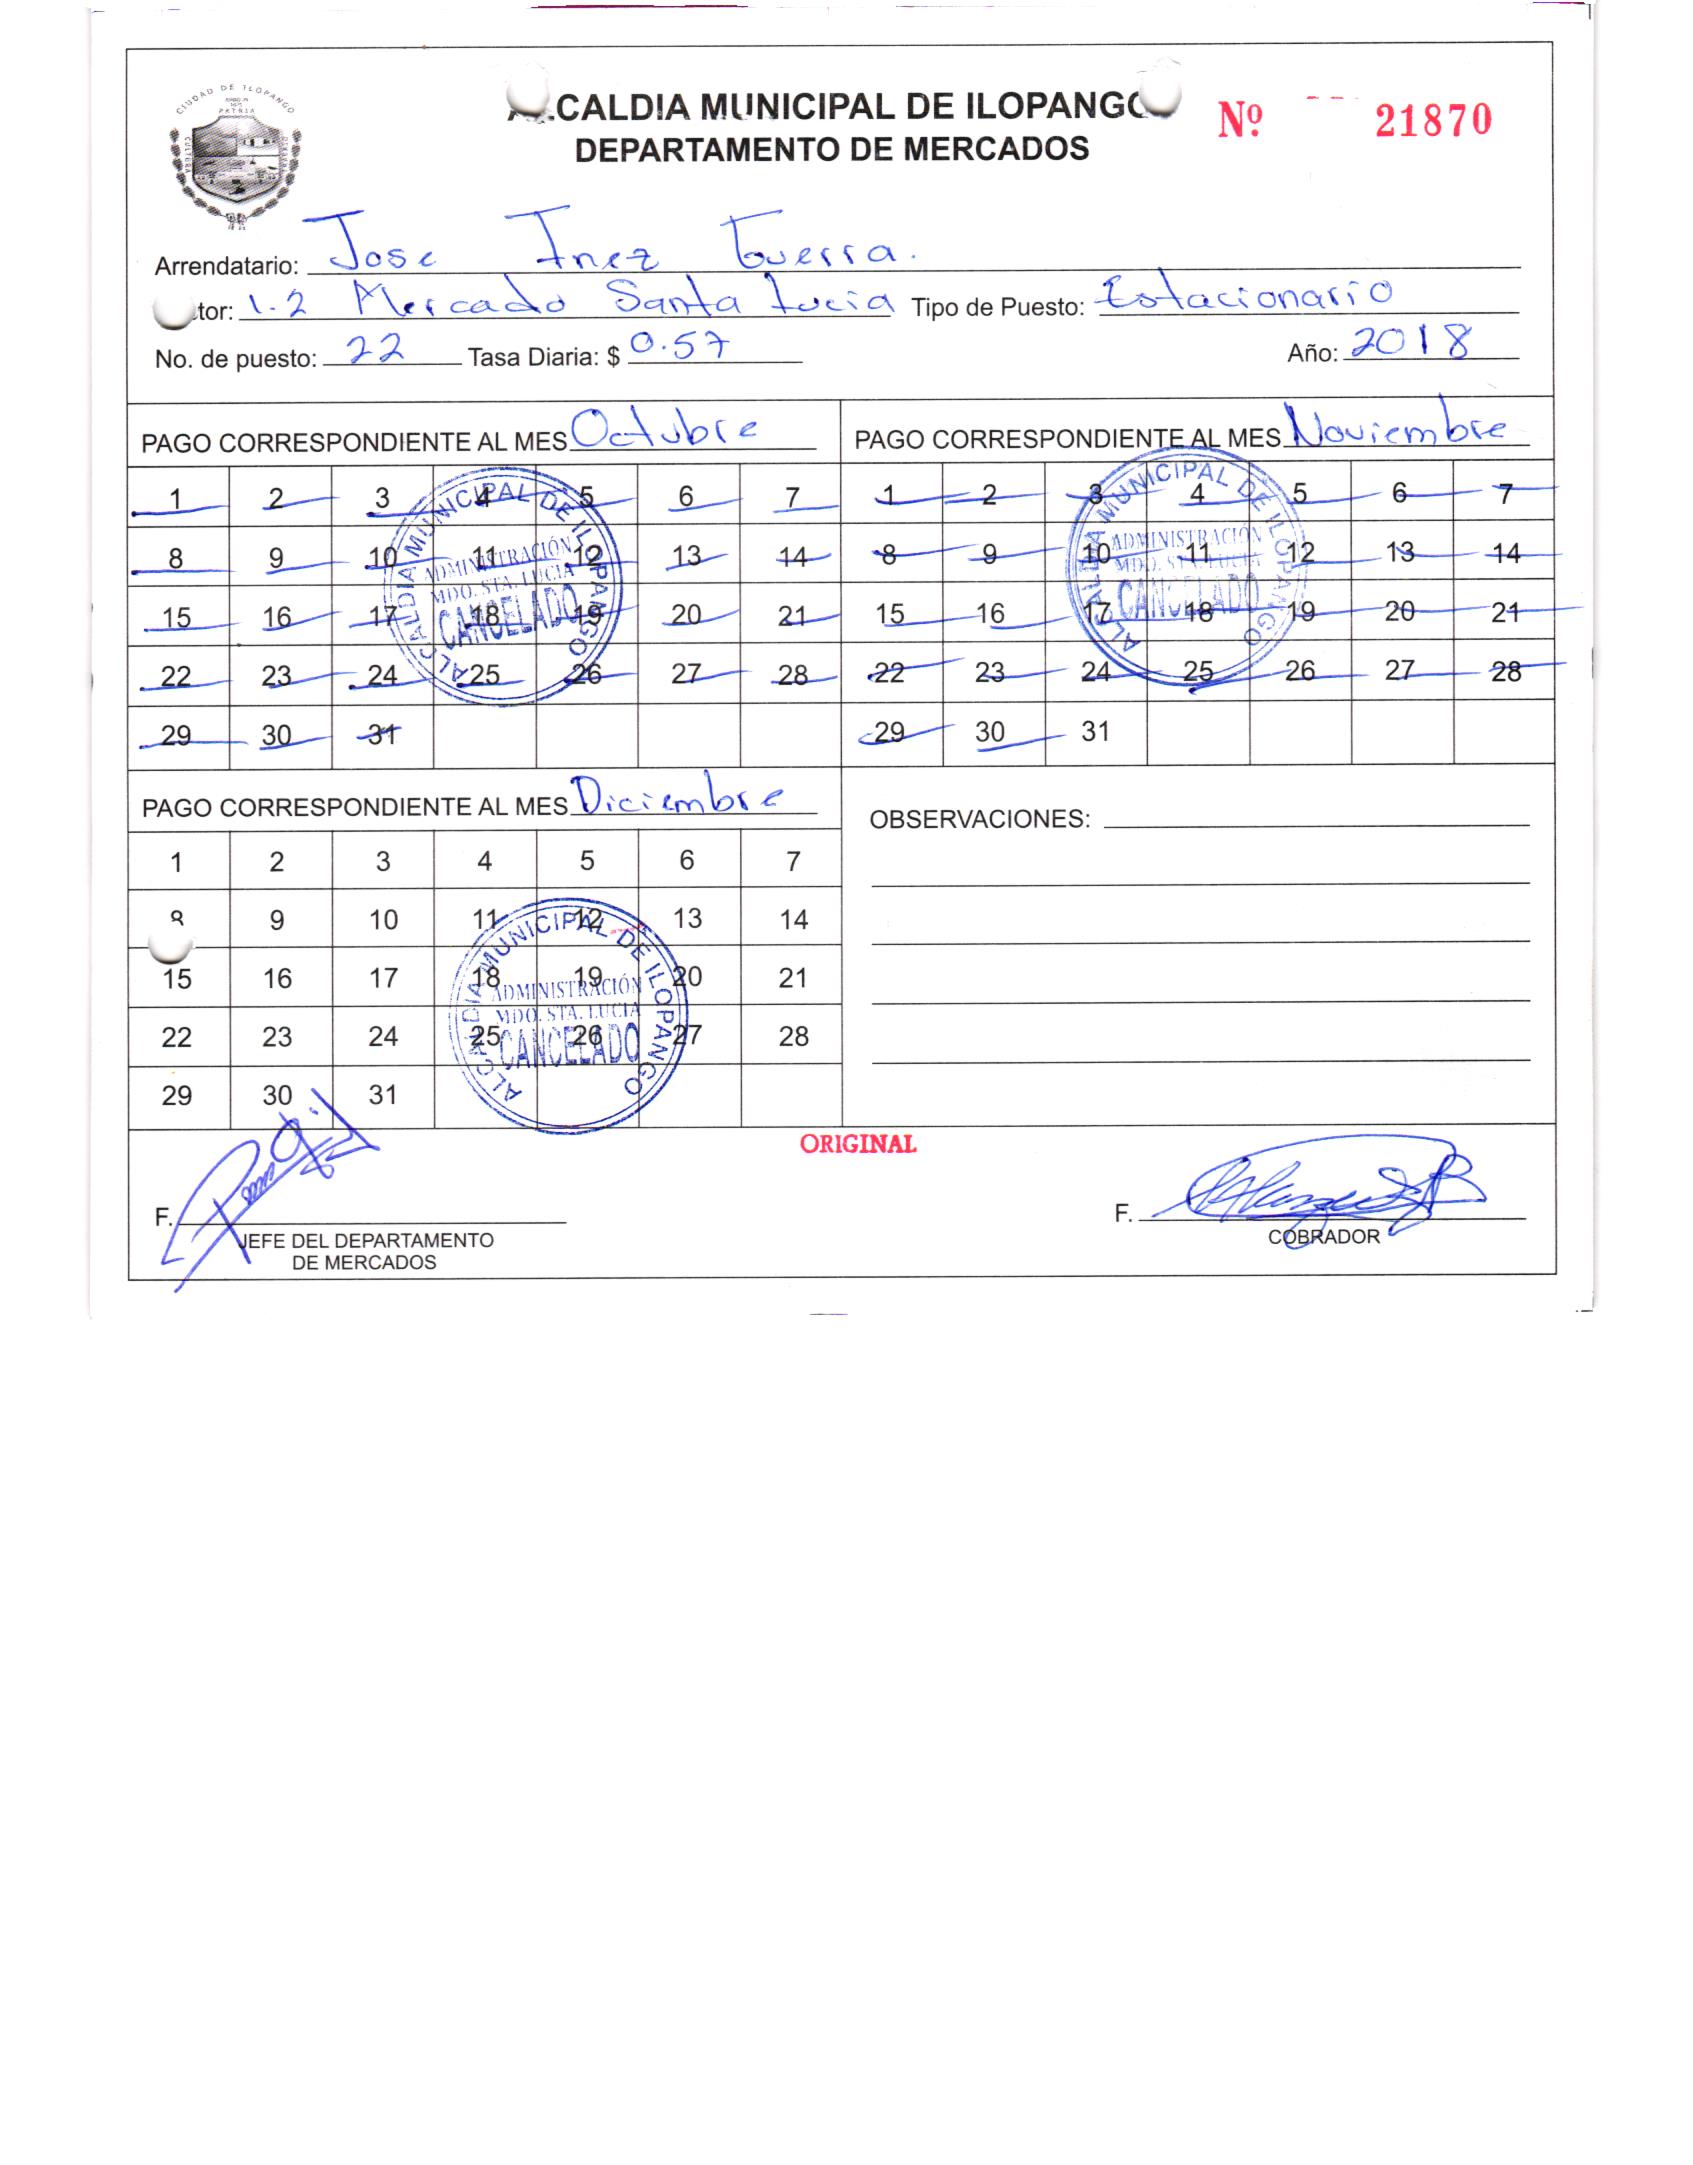 CIUDAD DE ILOPANGO
ALCALDIA MUNICIPAL DE ILOPANGO
Nº 21870
DEPARTAMENTO DE MERCADOS
Arrendatario: Jose Inez Guerra.
tor: 1.2 Mercado Santa Lucia Tipo de Puesto: Estacionario
No. de puesto: 22 Tasa Diaria: $ 0.57 Año: 2018
PAGO CORRESPONDIENTE AL MES Octubre
1 2 3 4 5 6 7
8 9 10 11 12 13 14
15 16 17 18 19 20 21
22 23 24 25 26 27 28
29 30 31
ALCALDIA MUNICIPAL DE ILOPANGO
ADMINISTRACIÓN
MDO. STA. LUCIA
CANCELADO
PAGO CORRESPONDIENTE AL MES Noviembre
1 2 3 4 5 6 7
8 9 10 11 12 13 14
15 16 17 18 19 20 21
22 23 24 25 26 27 28
29 30 31
ALCALDIA MUNICIPAL DE ILOPANGO
ADMINISTRACIÓN
MDO. STA. LUCIA
CANCELADO
PAGO CORRESPONDIENTE AL MES Diciembre
1 2 3 4 5 6 7
8 9 10 11 12 13 14
15 16 17 18 19 20 21
22 23 24 25 26 27 28
29 30 31
ALCALDIA MUNICIPAL DE ILOPANGO
ADMINISTRACIÓN
MDO. STA. LUCIA
CANCELADO
OBSERVACIONES:
ORIGINAL
F.
JEFE DEL DEPARTAMENTO
DE MERCADOS
F.
COBRADOR